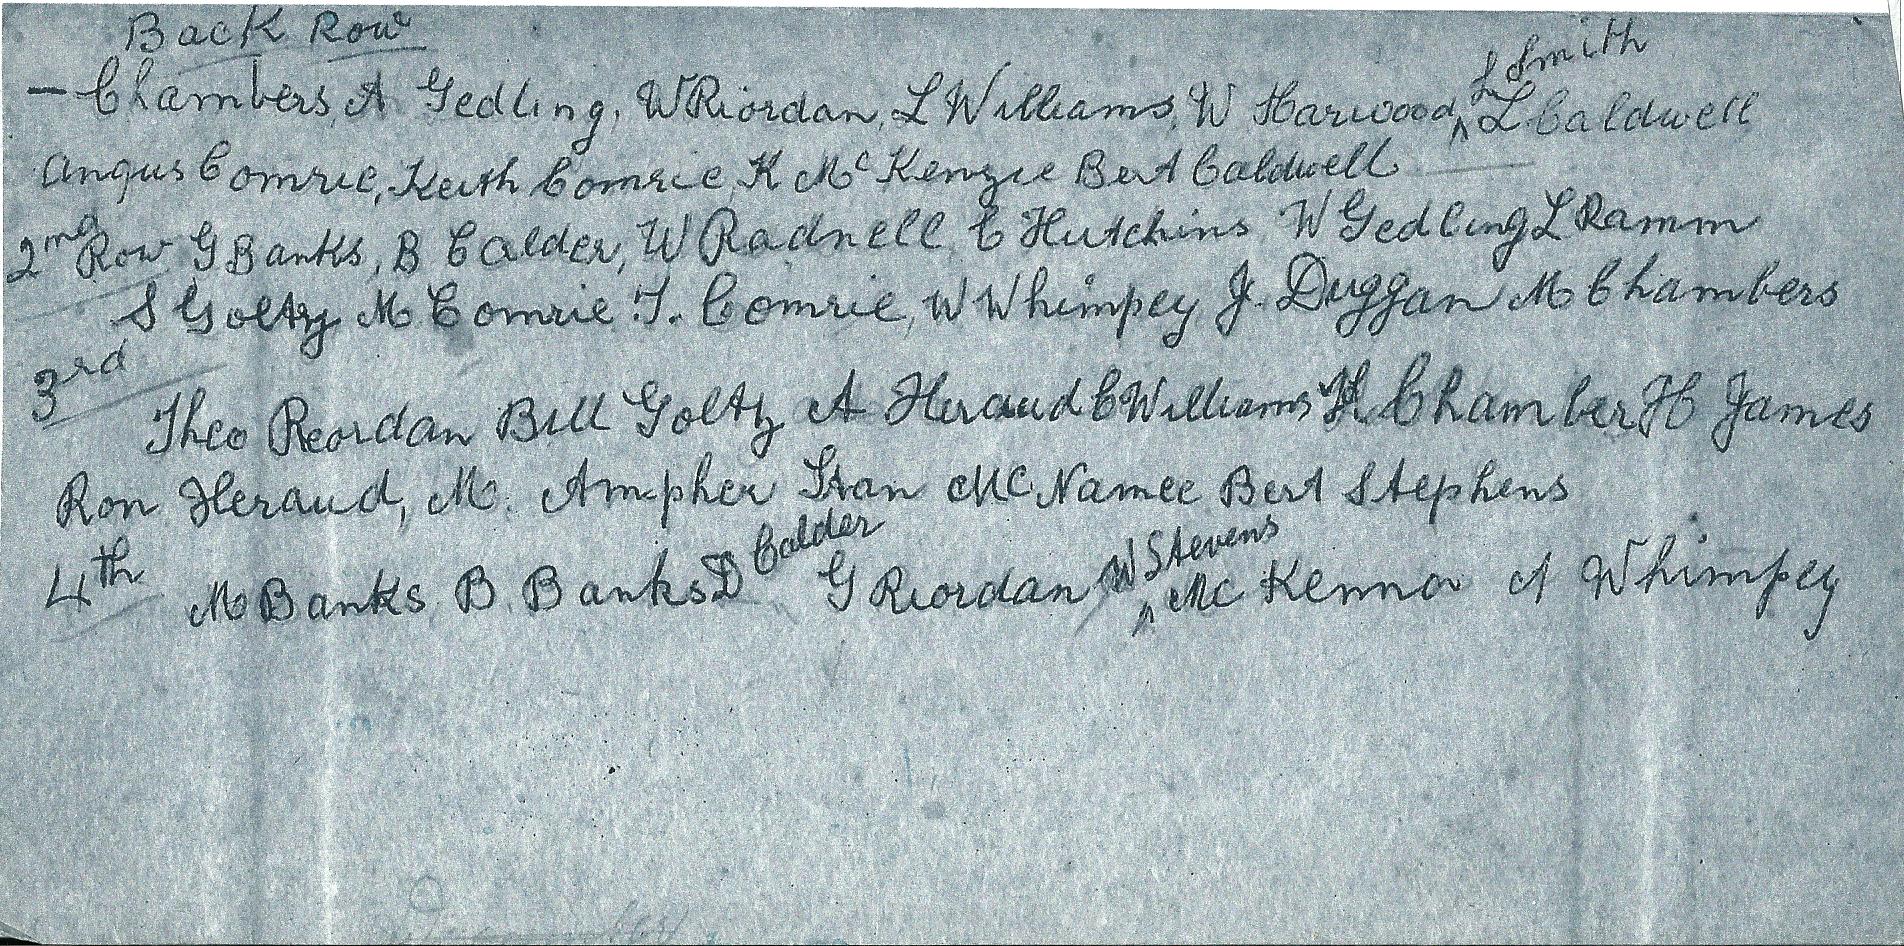 Back Row
— Chambers, A Gedling, W Riordan, L Williams, W Harwood, L Smith L Caldwell
Angus Comrie, Keith Comrie, K McKenzie Bert Caldwell
2nd Row G Banks, B Calder, W Radnell C Hutchins W Gedling L Ramm
S Goltz M Comrie T. Comrie, W Whimpey J. Duggan M Chambers
3rd
Theo Reordan Bill Goltz A Heraud C Williams H. Chamber H James
Ron Heraud, M. Ampher Stan McNamee Bert Stephens
4th M Banks B Banks D Calder G Riordan W Stevens McKenna A Whimpey